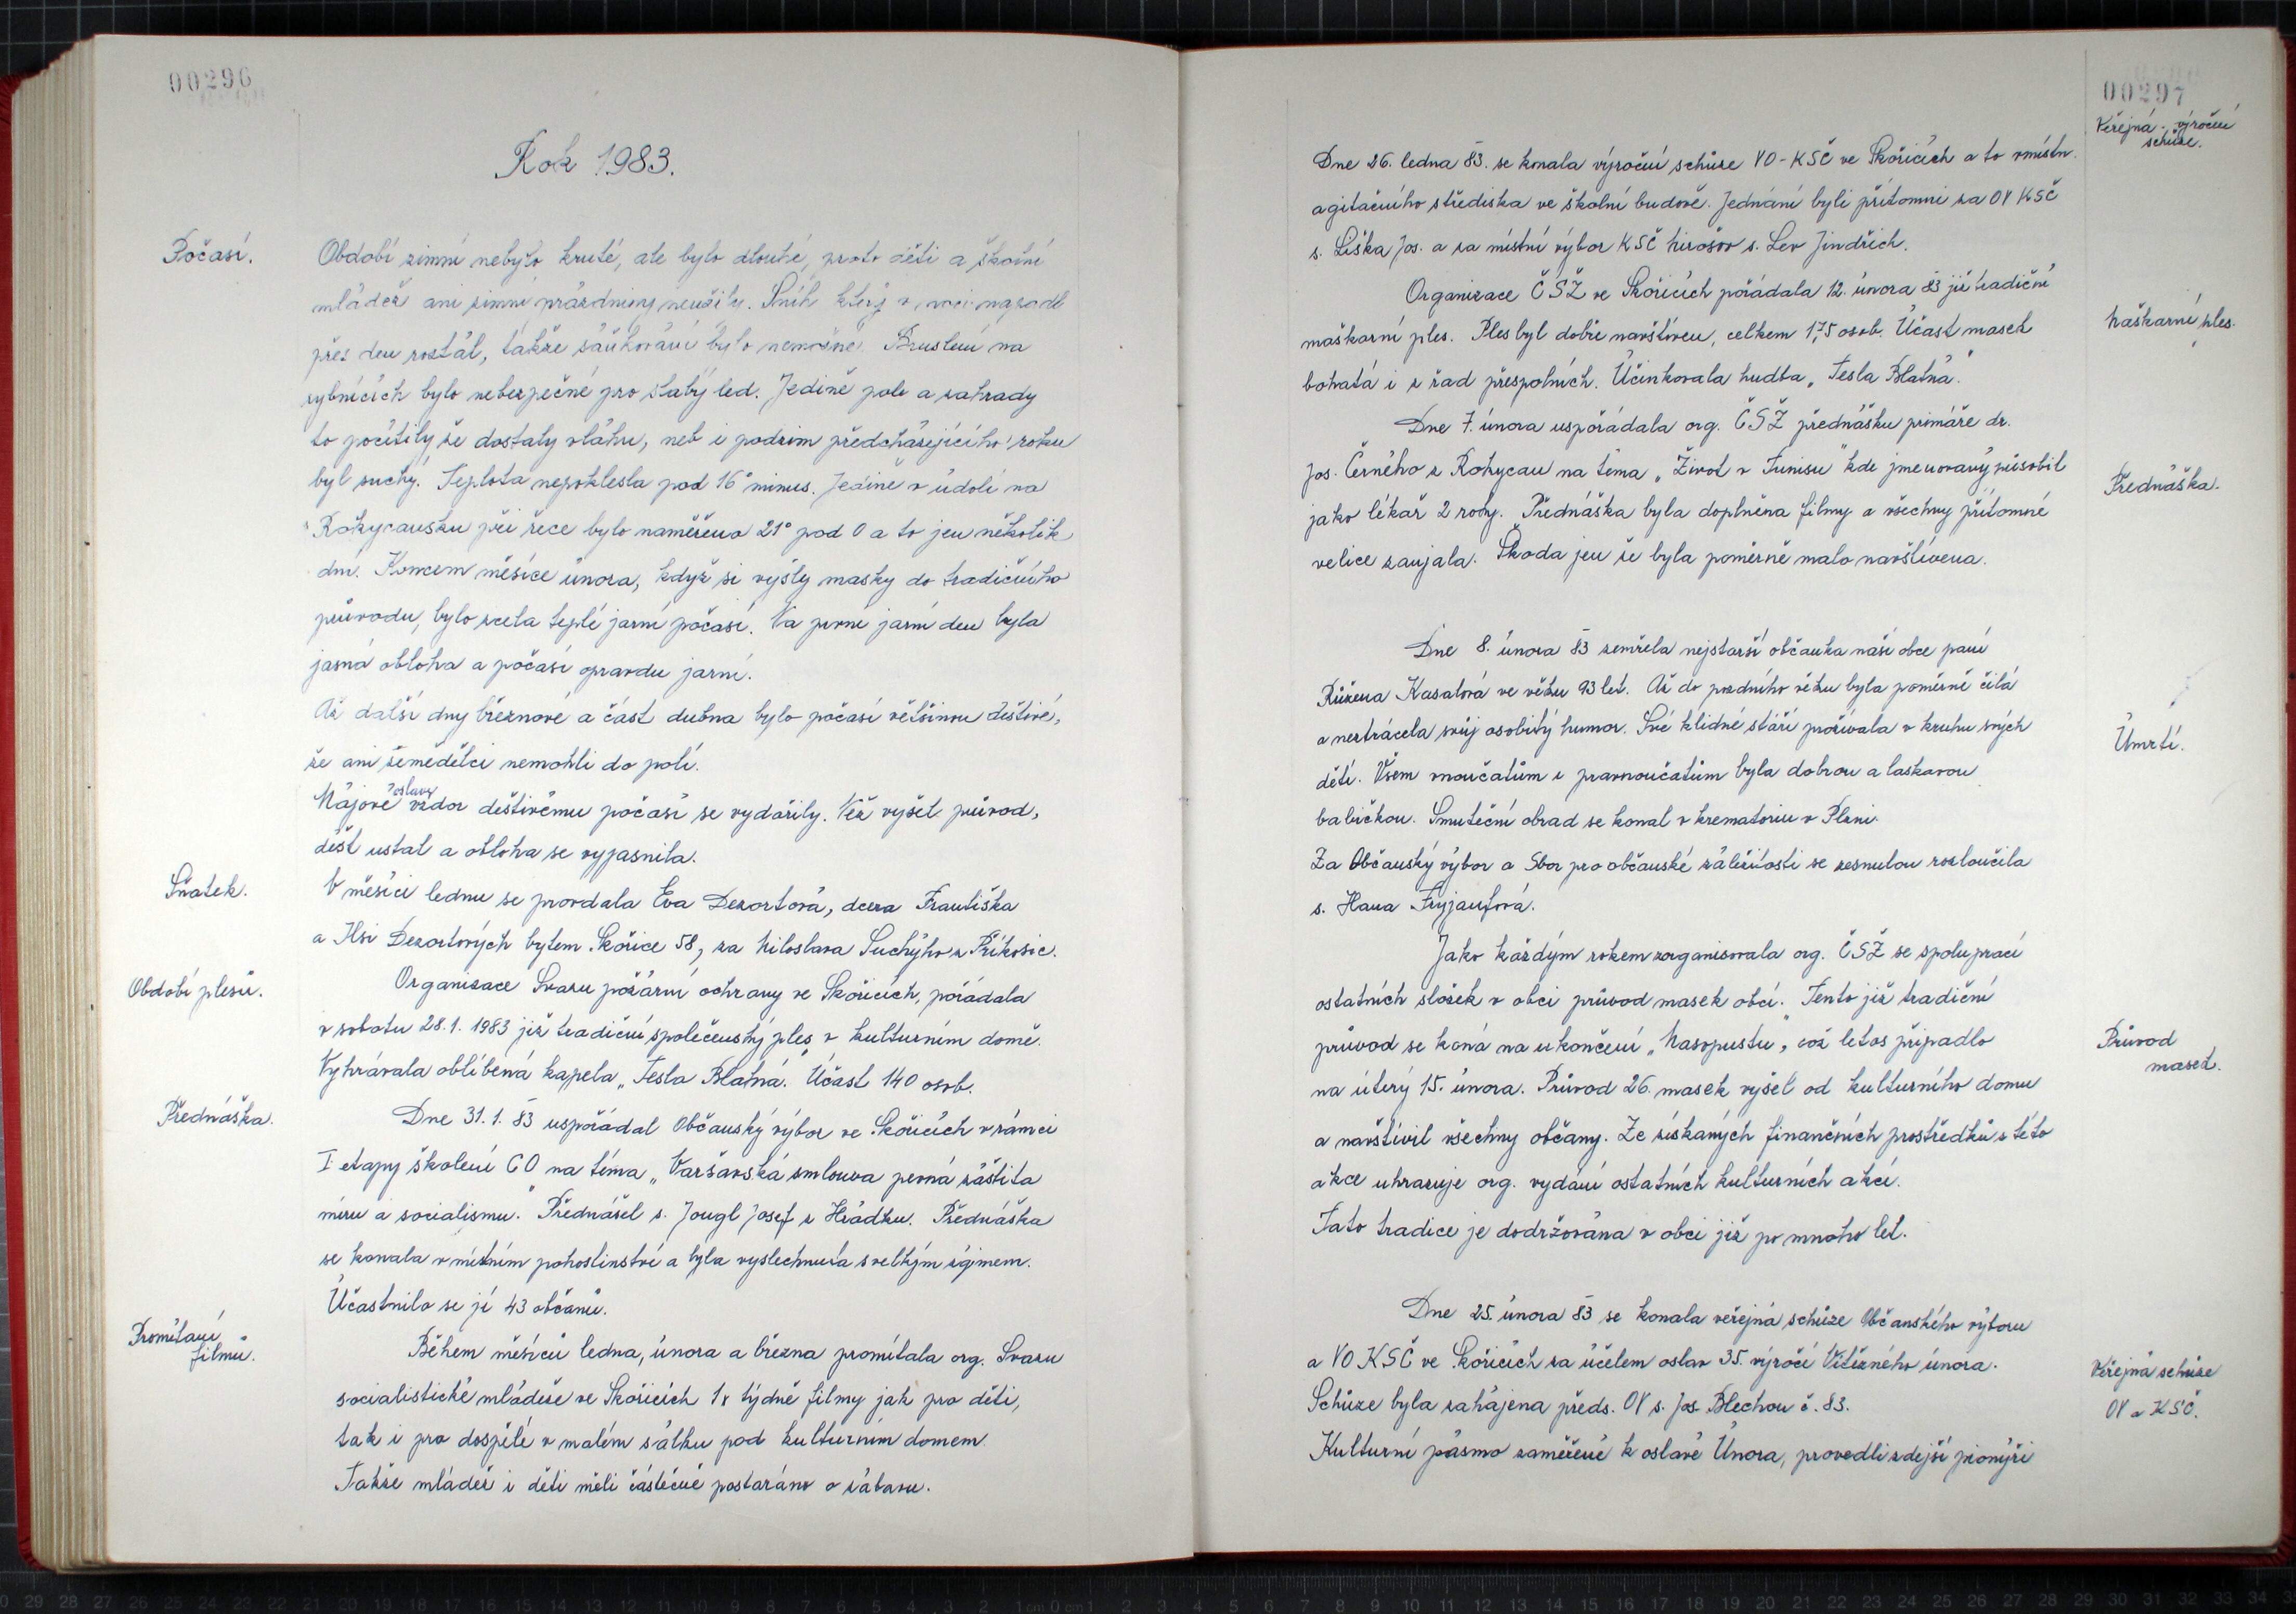 00296
Rok 1983.
Počasí.
Období zimní nebylo kruté, ale bylo dlouhé, proto děti a školní
mládež ani zimní prázdniny neužily. Sníh který v noci napadl
přes den roztál, takže sáňkování bylo nemožné. Bruslení na
rybnících bylo nebezpečné pro slabý led. Jedině pole a zahrady
to pocítily že dostaly vláhu, neb i podzim předcházejícího roku
byl suchý. Teplota nepoklesla pod 16° minus. Jedině v údolí na
Rokycansku při řece bylo naměřeno 21° pod 0 a to jen několik
dní. Koncem měsíce února, když si vyšly masky do tradičního
průvodu, bylo zcela teplé jarní počasí. Na první jarní den byla
jasná obloha a počasí opravdu jarní.
Až další dny březnové a část dubna bylo počasí většinou deštivé,
že ani zemědělci nemohli do polí.
Májové oslavy vzdor deštivému počasí se vydařily. Než vyšel průvod,
déšť ustal a obloha se vyjasnila.
Sňatek.
V měsíci lednu se provdala Eva Dezortová, dcera Františka
a Ilsi Dezortových bytem Skořice 58, za Miloslava Suchýho z Příkosic.
Období plesů.
Organizace Svazu požární ochrany ve Skořicích, pořádala
v sobotu 28.1. 1983 již tradiční společenský ples v kulturním domě.
Vyhrávala oblíbená kapela „Tesla Blatná." Účast 140 osob.
Přednáška.
Dne 31.1. 83 uspořádal Občanský výbor ve Skořicích v rámci
I etapy školení CO na téma „Varšavská smlouva pevná záštita
míru a socialismu." Přednášel s. Jougl Josef z Hrádku. Přednáška
se konala v místním pohostinství a byla vyslechnuta s velkým zájmem.
Účastnilo se jí 43 občanů.
Promítání
filmů.
Během měsíců ledna, února a března promítala org. Svazu
socialistické mládeže ve Skořicích 1x týdně filmy jak pro děti,
tak i pro dospělé v malém sálku pod kulturním domem
Takže mládež i děti měli částečně postaráno o zábavu.
00297
Veřejná výroční
schůze.
Dne 26. ledna 83. se konala výroční schůze VO-KSČ ve Skořicích a to v místn.
agitačního střediska ve školní budově. Jednání byli přítomni za OV KSČ
s. Liška Jos. a za místní výbor KSČ Mirošov s. Lev Jindřich.
Organizace ČSŽ ve Skořicích pořádala 12. února 83 již tradiční
Maškarní ples.
maškarní ples. Ples byl dobře navštíven, celkem 175 osob. Účast masek
bohatá i z řad přespolních. Účinkovala hudba „Tesla Blatná."
Dne 7. února uspořádala org. ČSŽ přednášku primáře dr.
Jos. Černého z Rokycan na téma „Život v Tunisu" kde jmenovaný působil
Přednáška.
jako lékař 2 roky. Přednáška byla doplněna filmy a všechny přítomné
velice zaujala. Škoda jen že byla poměrně málo navštívena.
Dne 8. února 83 zemřela nejstarší občanka naší obce paní
Růžena Kasalová ve věku 93 let. Až do pozdního věku byla poměrně čilá
a neztrácela svůj osobitý humor. Své klidné stáří prožívala v kruhu svých
Úmrtí.
dětí. Všem vnoučatům i pravnoučatům byla dobrou a laskavou
babičkou. Smuteční obřad se konal v krematoriu v Plzni.
Za Občanský výbor a Sbor pro občanské záležitosti se zesnulou rozloučila
s. Hana Fryjaufová.
Jako každým rokem zorganisovala org. ČSŽ se spoluprací
ostatních složek v obci průvod masek obcí. Tento již tradiční
průvod se koná na ukončení „Masopustu", což letos připadlo
Průvod
masek.
na úterý 15. února. Průvod 26 masek vyšel od kulturního domu
a navštívil všechny občany. Ze získaných finančních prostředků z této
akce uhrazuje org. vydání ostatních kulturních akcí.
Tato tradice je dodržována v obci již po mnoho let.
Dne 25. února 83 se konala veřejná schůze Občanského výboru
a VO KSČ ve Skořicích za účelem oslav 35. výročí Vítězného února.
Veřejná schůze
OV a KSČ.
Schůze byla zahájena předs. OV s. Jos. Blechou č. 83.
Kulturní pásmo zaměřené k oslavě Února, provedli zdejší pionýři